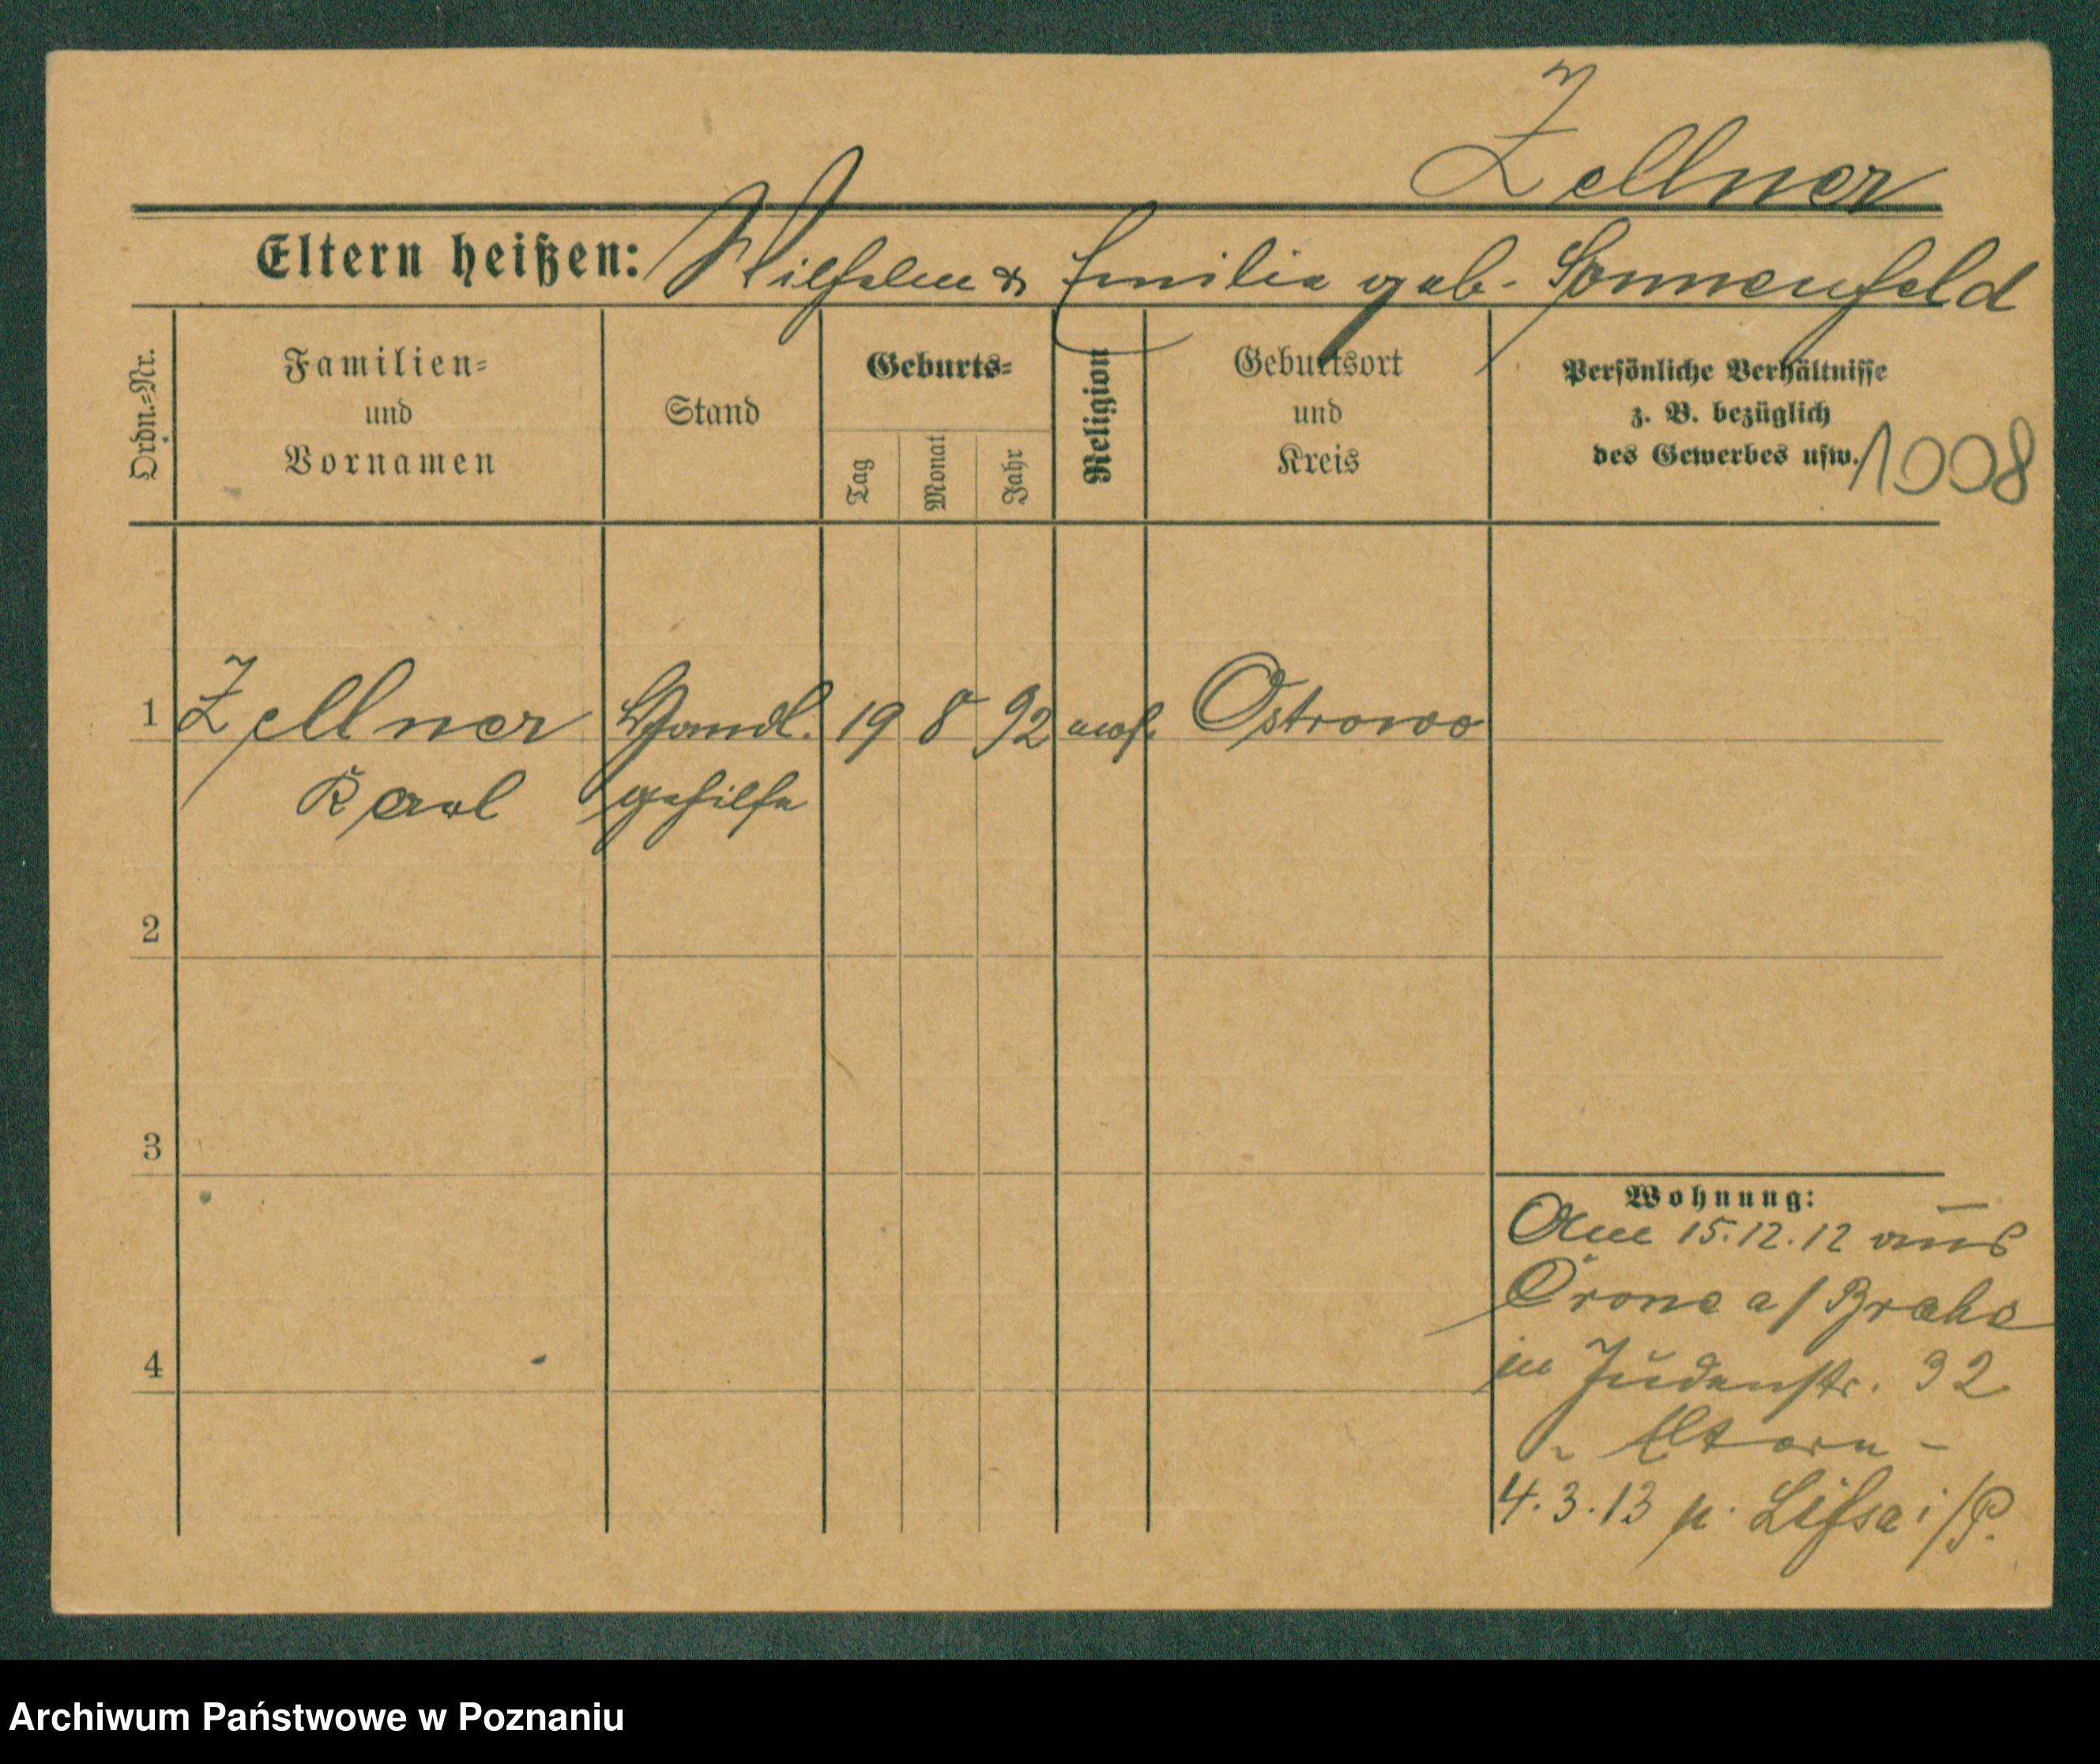 Zellner
Eltern heißen: Wilhelm & Emilie geb. Sonnenfeld
Ordn.=Nr.
Familien=
und
Vornamen
Stand
Geburts=
Tag
Monat
Jahr
Religion
Geburtsort
und
Kreis
Persönliche Verhältnisse
z. B. bezüglich
des Gewerbes usw.
1008
1 Zellner Handl. 19 8 92 mos. Ostrowo
Karl gehilfe
2
3
4
Wohnung:
Am 15.12.12 aus
Crone a/Brahe
in Judenstr. 32
Eltern -
4.3.13 n. Lissa i/P.
Archiwum Państwowe w Poznaniu